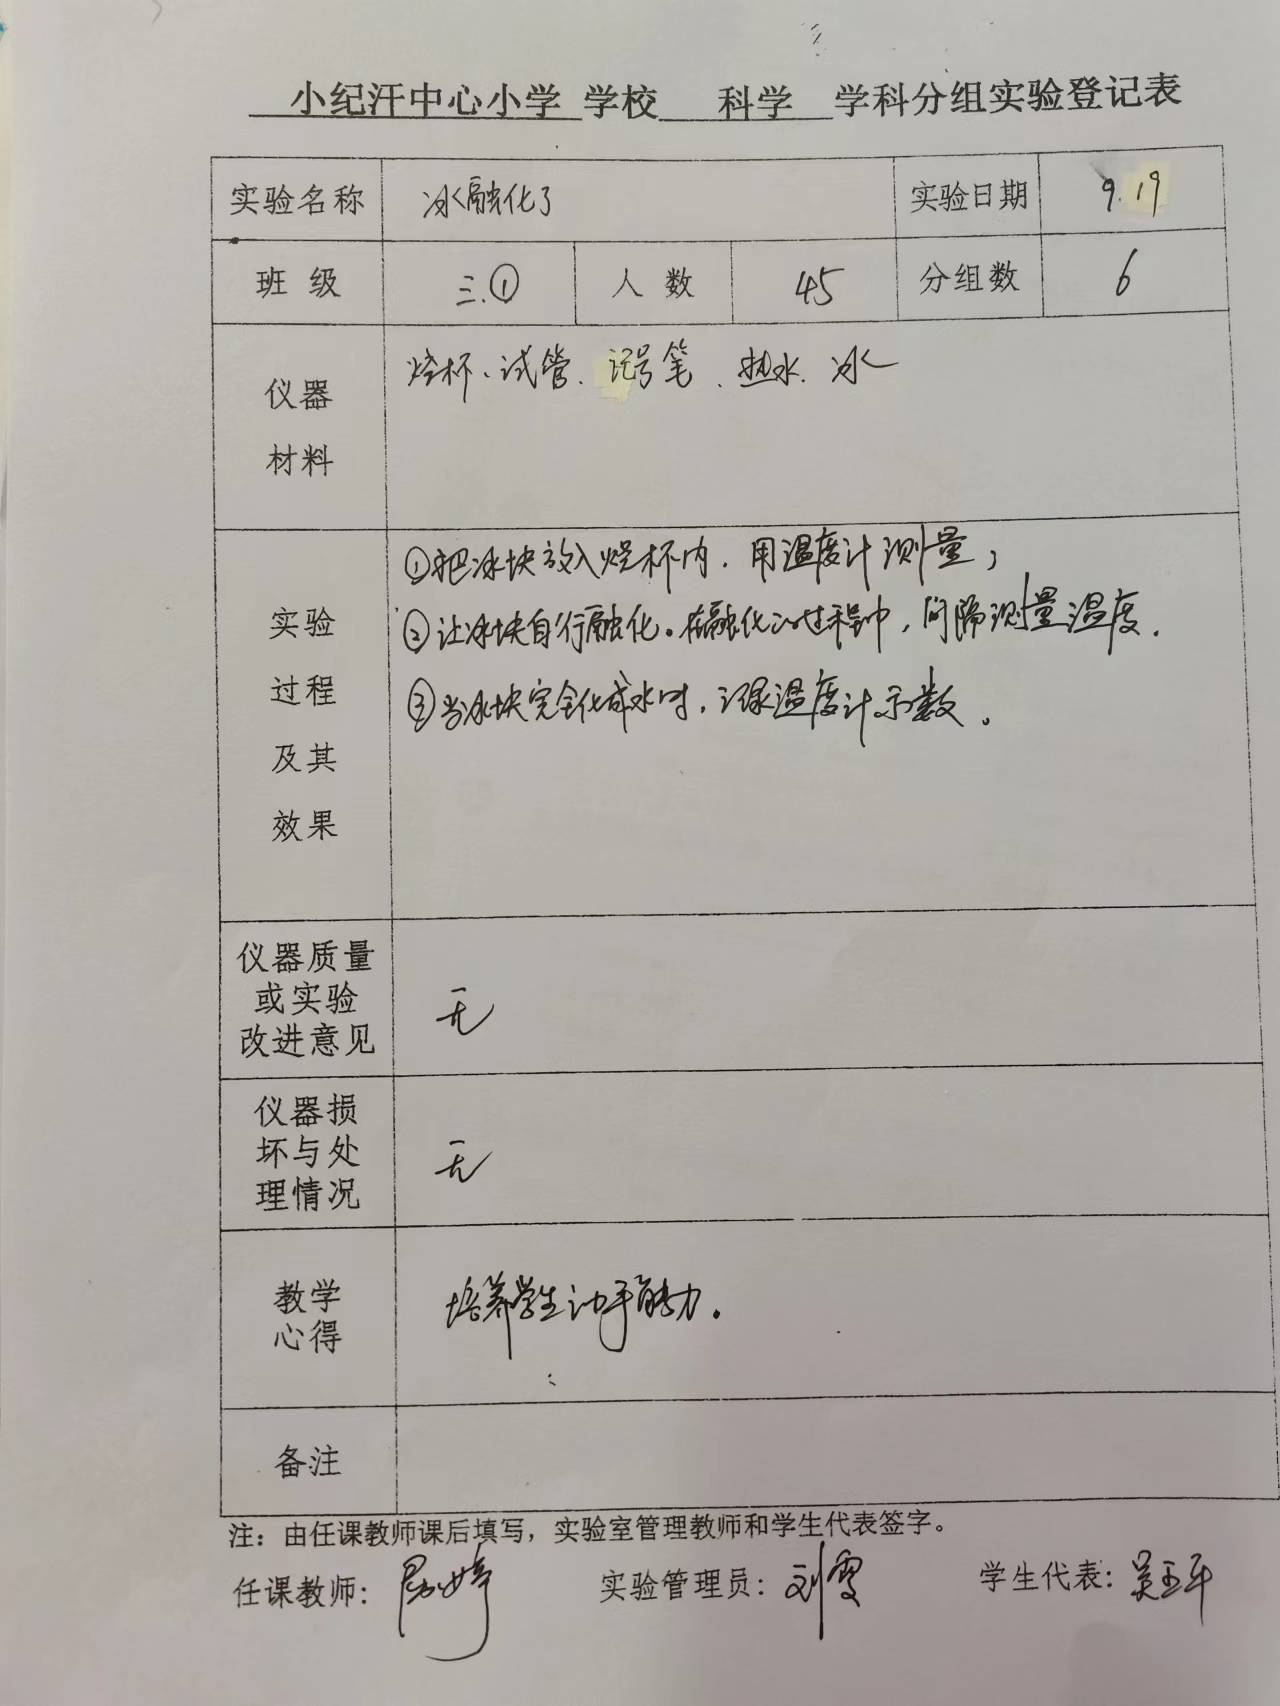 小纪汗中心小学 学校 科学 学科分组实验登记表
实验名称 冰融化了 实验日期 9.19
班 级 三.① 人 数 45 分组数 6
仪器
材料
烧杯、试管、记号笔、热水、冰
实验
过程
及其
效果
①把冰块放入烧杯内,用温度计测量;
②让冰块自行融化。在融化的过程中,间隔测量温度.
③当冰块完全化成水时,记录温度计示数。
仪器质量
或实验
改进意见
无
仪器损
坏与处
理情况
无
教学
心得
培养学生动手能力。
备注
注:由任课教师课后填写,实验室管理教师和学生代表签字。
任课教师: 实验管理员:刘雯 学生代表:吴玉平